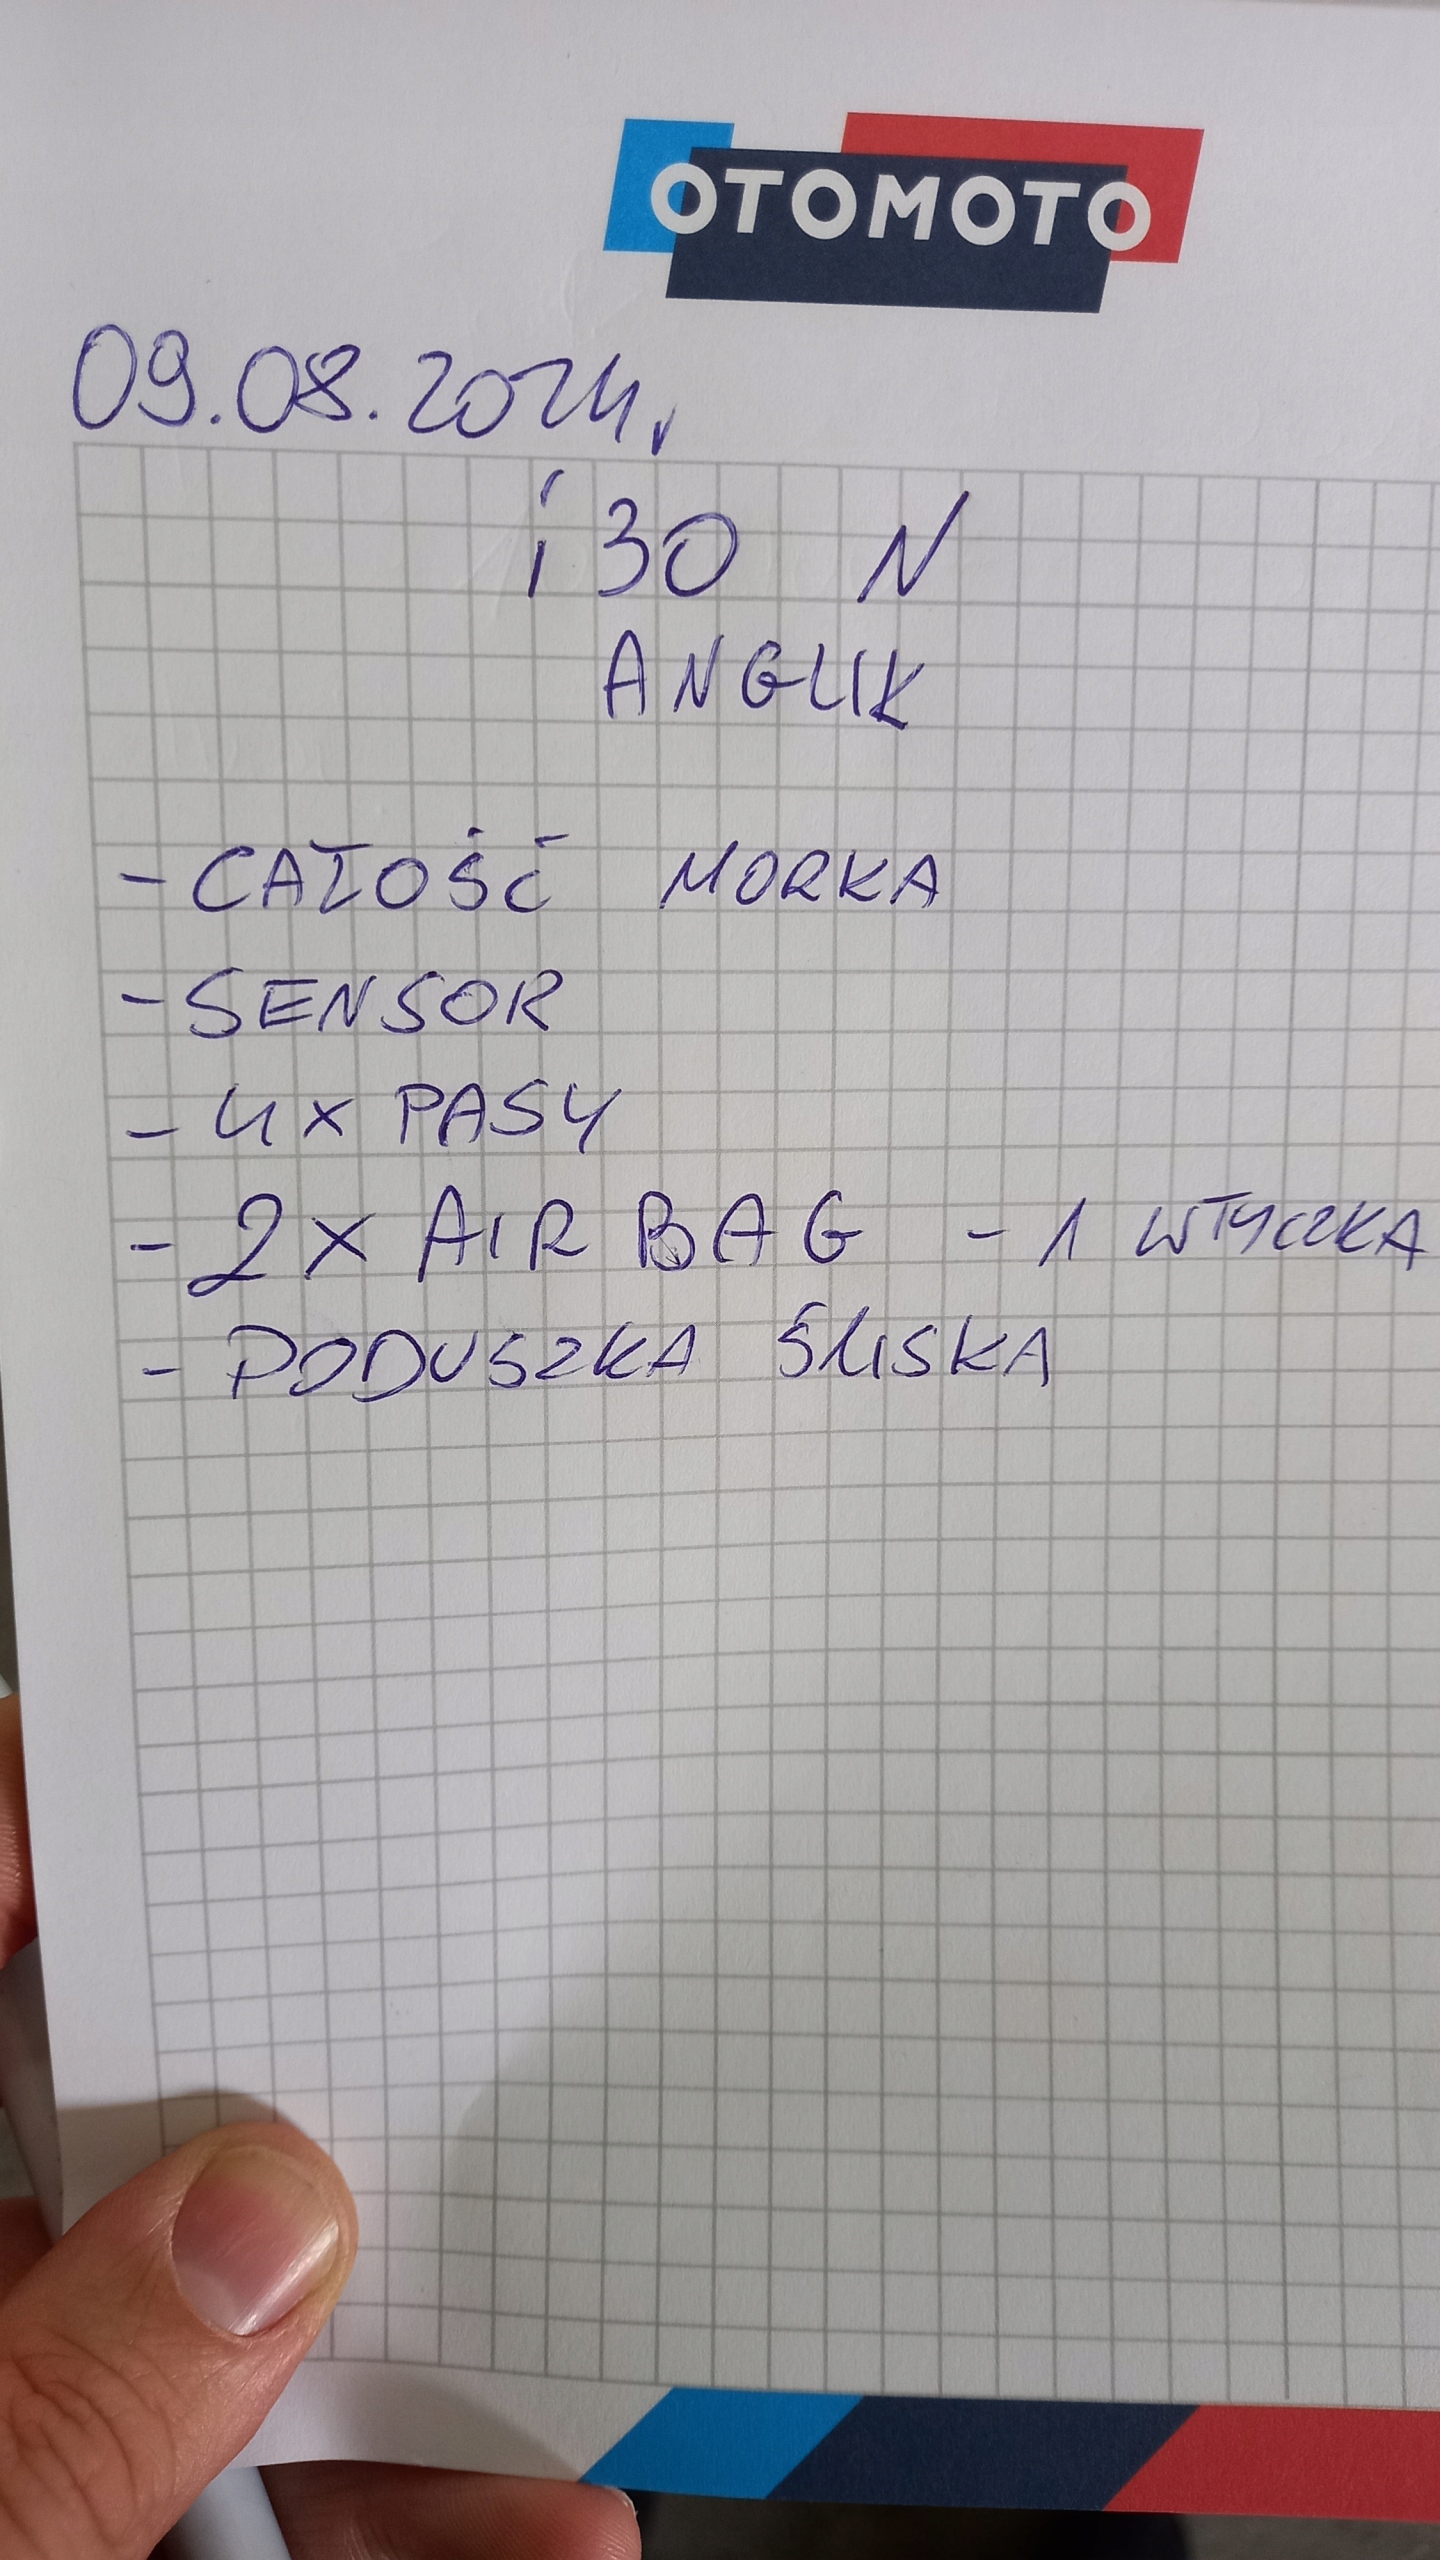 OTOMOTO
09.08.2024r
i30 N
ANGLIK
- CAŁOŚĆ MORKA
- SENSOR
- 4x PASY
- 2x AIR BAG - 1 WTYCZKA
- PODUSZKA ŚLISKA